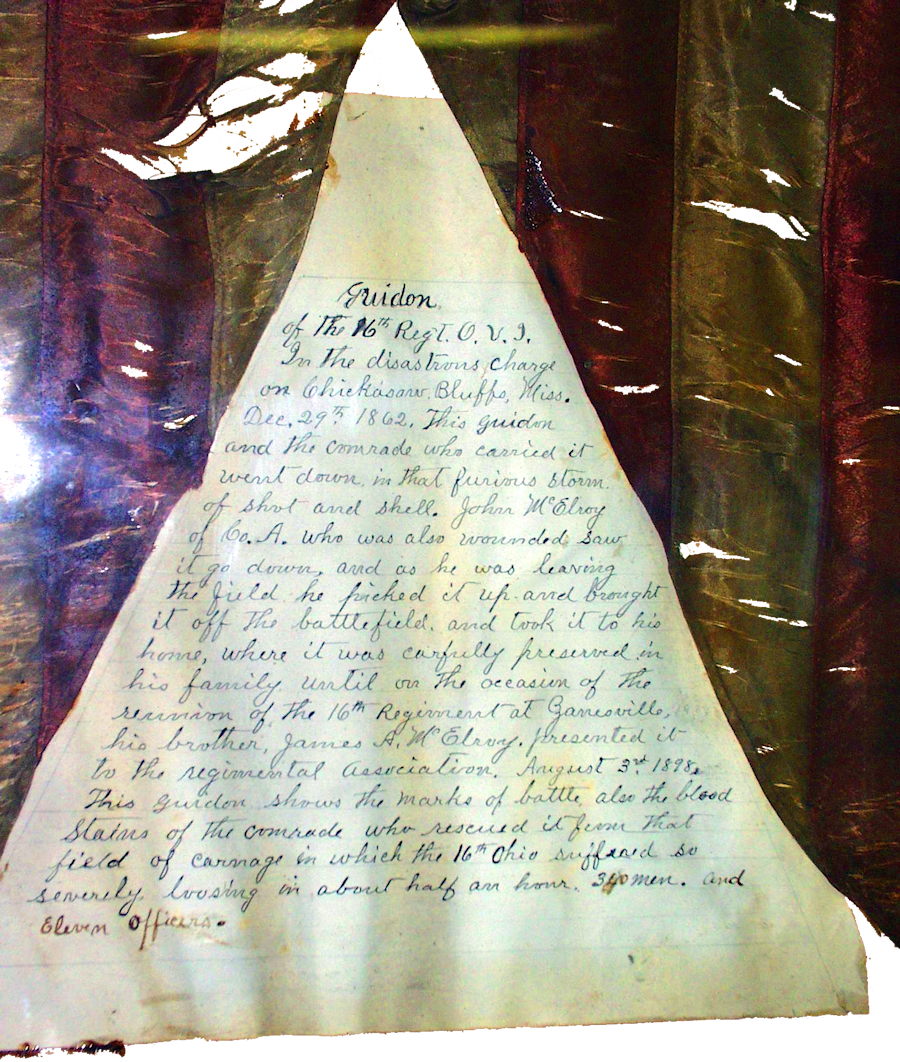 Guidon
of the 16th Regt. O. V. I.
In the disastrous charge
on Chickasaw Bluffs, Miss.
Dec. 29th 1862. This guidon
and the comrade who carried it
went down in that furious storm
of shot and shell. John McElroy
of Co. A. who was also wounded saw
it go down, and as he was leaving
the field he picked it up and brought
it off the battlefield. and took it to his
home, where it was carfully preserved in
his family until on the occasion of the
reunion of the 16th Regiment at Zanesville,
his brother, James A. McElroy. presented it
to the regimental Association. August 3rd 1898.
This guidon shows the marks of battle also the blood
stains of the comrade who rescued it from that
field of carnage in which the 16th Ohio suffered so
severely. loosing in about half an hour. 340 men. and
Eleven Officers.